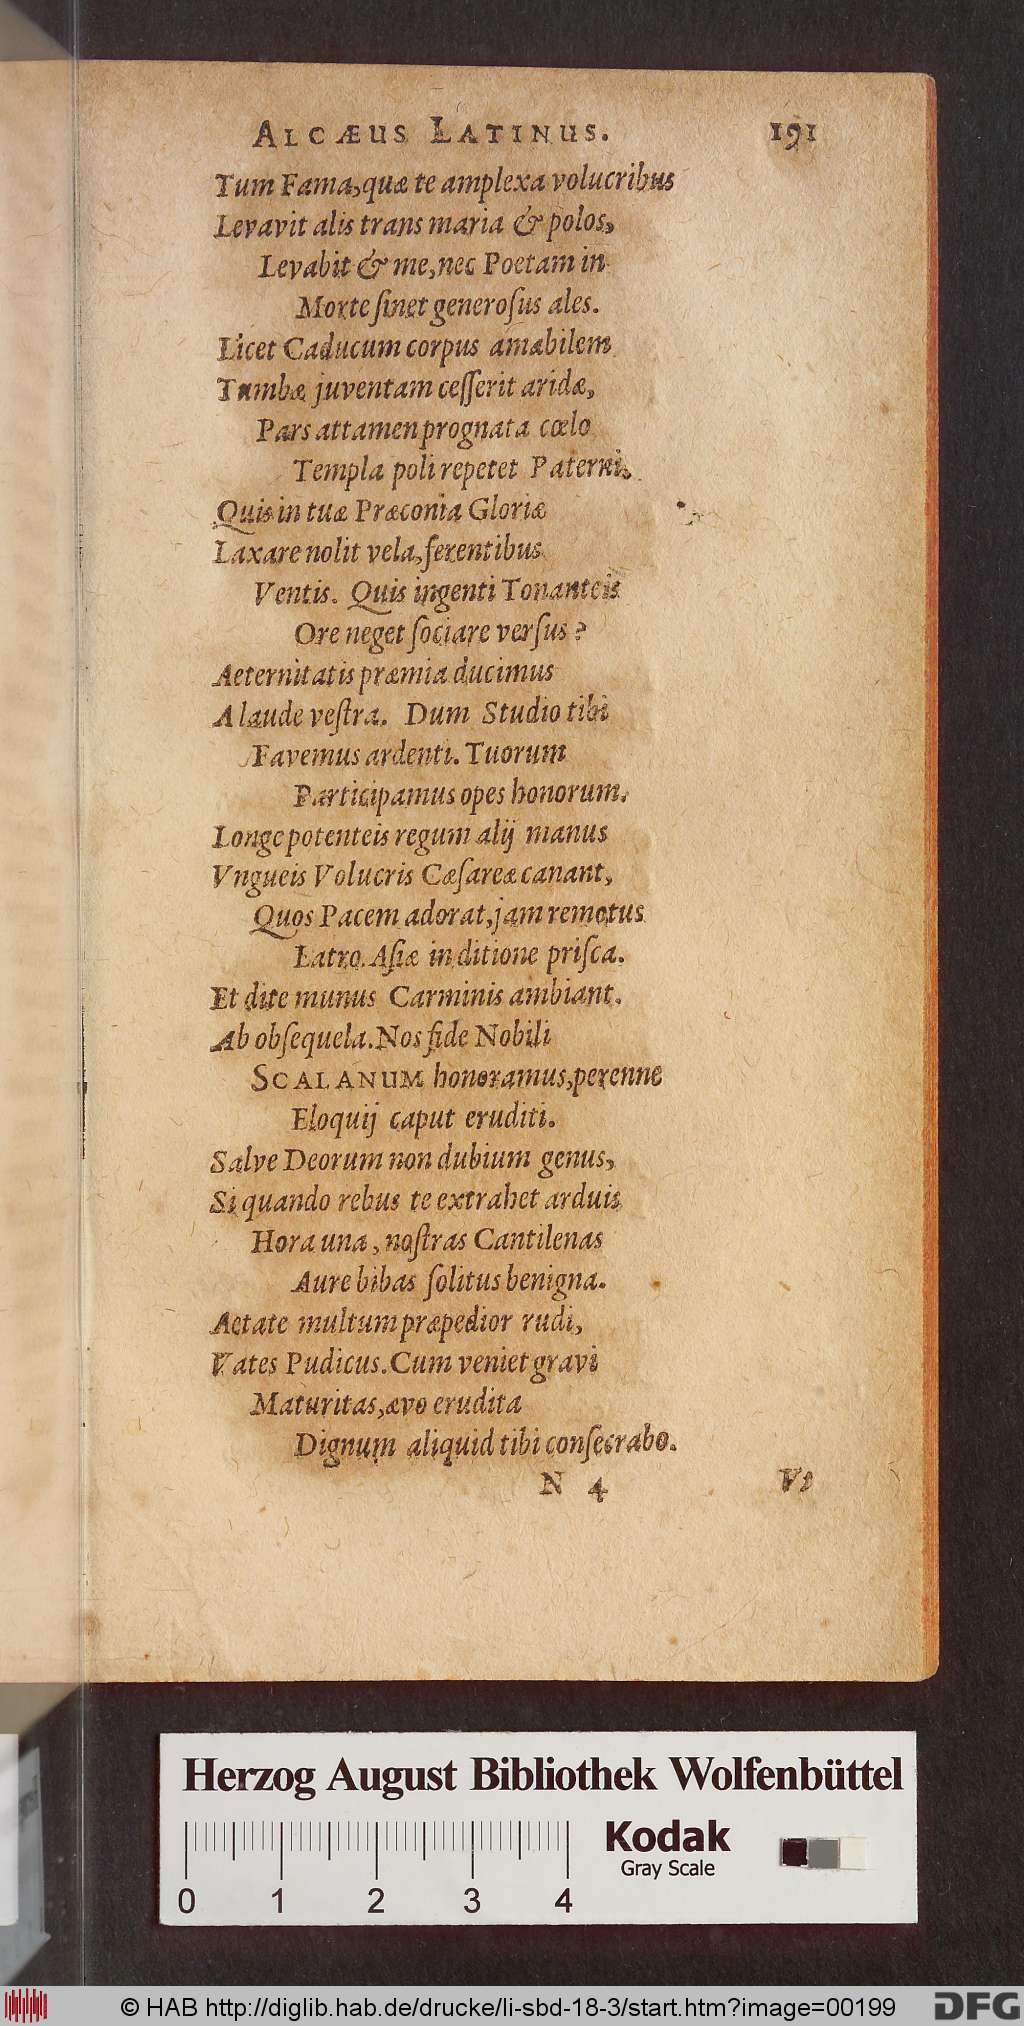 ALCÆUS LATINUS. 191
Tum Fama, quæ te amplexa volucribus
Levavit alis trans maria & polos,
Levabit & me, nec Poetam in
Morte ſinet generoſus ales.
Licet Caducum corpus amabilem
Tumbæ juventam ceſſerit aridæ,
Pars attamen prognata cœlo
Templa poli repetet Paterni.
Quis in tuæ Præconia Gloriæ
Laxare nolit vela, ferentibus
Ventis. Quis ingenti Tonanteis
Ore neget ſociare verſus?
Aeternitatis præmia ducimus
A laude veſtra. Dum Studio tibi
Favemus ardenti. Tuorum
Participamus opes honorum.
Longe potenteis regum alij manus
Vngueis Volucris Cæſareæ canant,
Quos Pacem adorat, jam remotus
Latro. Aſiæ in ditione priſca.
Et dite munus Carminis ambiant.
Ab obſequela. Nos fide Nobili
SCALANUM honoramus, perenne
Eloquij caput eruditi.
Salve Deorum non dubium genus,
Si quando rebus te extrahet arduis
Hora una, noſtras Cantilenas
Aure bibas ſolitus benigna.
Aetate multum præpedior rudi,
Vates Pudicus. Cum veniet gravi
Maturitas, ævo erudita
Dignum aliquid tibi conſecrabo.
N 4 Vt
Herzog August Bibliothek Wolfenbüttel
Kodak
Gray Scale
0 1 2 3 4
© HAB http://diglib.hab.de/drucke/li-sbd-18-3/start.htm?image=00199 DFG